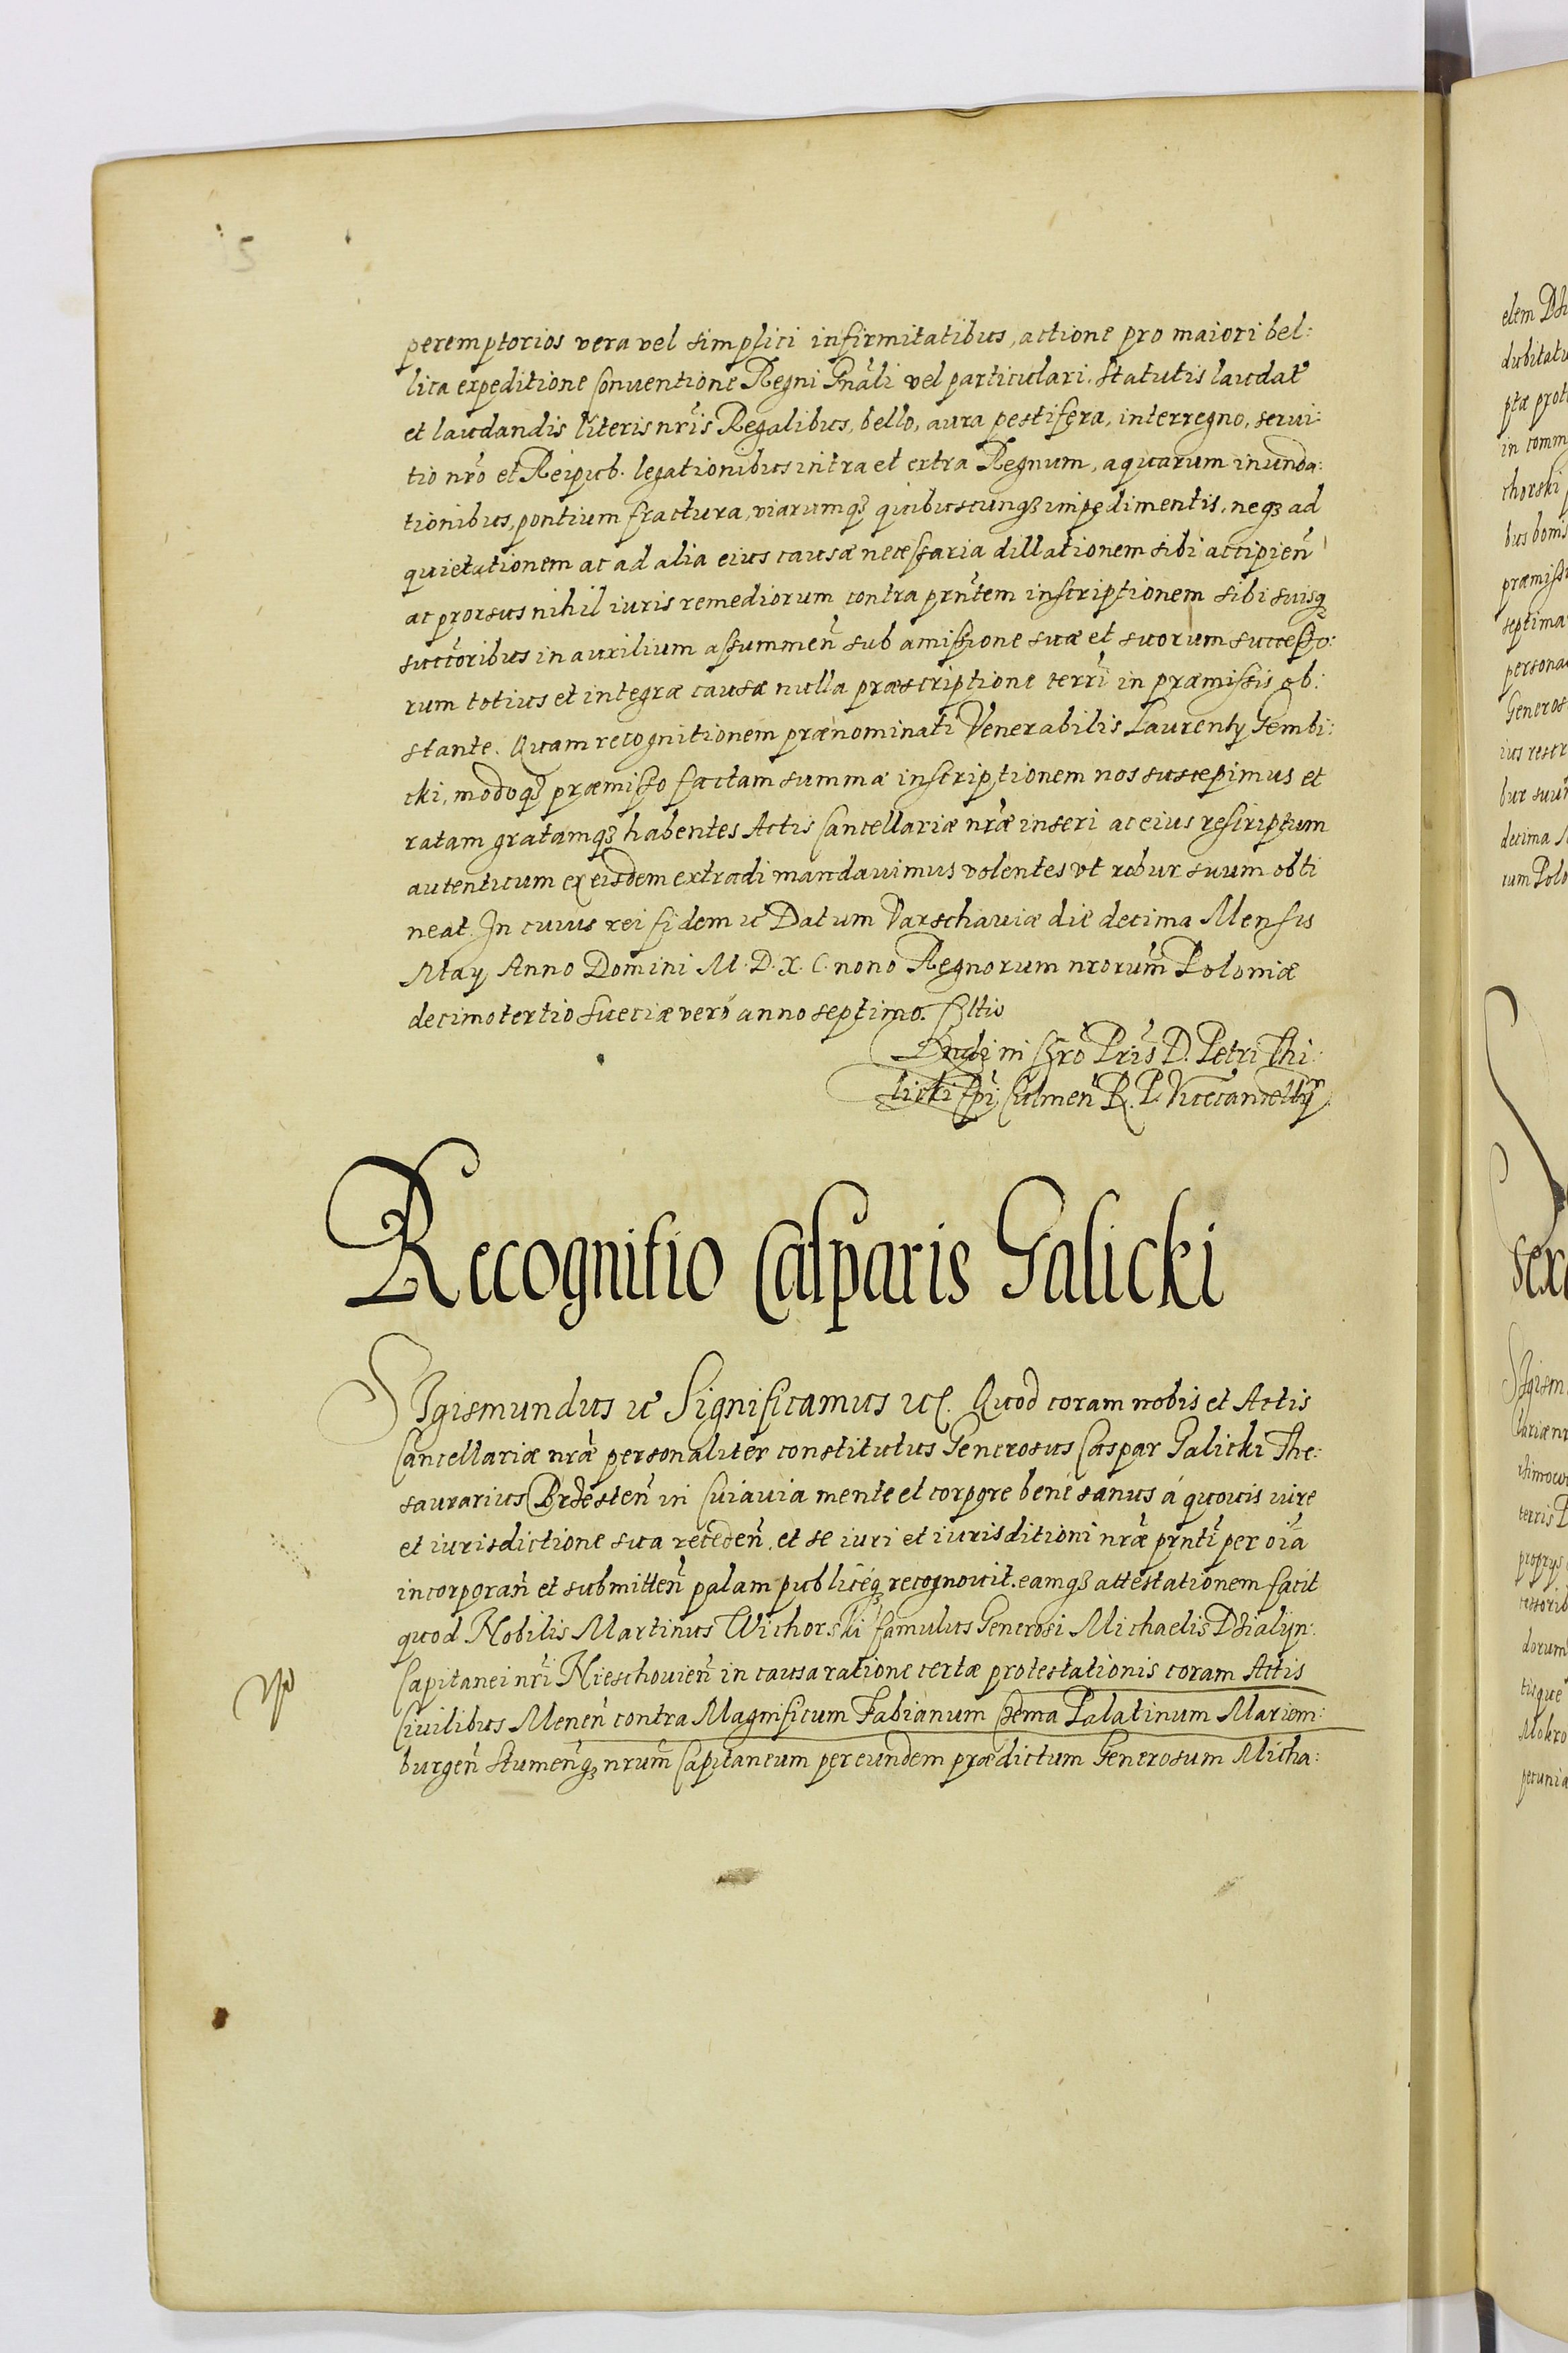 15
peremptorios vera vel simplici infirmitatibus, actione pro maiori bel:
lica expeditione Conventione Regni Gnãli vel particulari. Statutis laudat̃
et laudandis literis nr̃is Regalibus, bello, aura pestifera, interregno, servi:
tio nr̃o et Reipub. legationibus intra et extra Regnum, aquarum inunda:
tionibus, pontium fractura, viarumq̃ quibuscunqȝ impedimentis, neqȝ ad
quietationem ac ad alia eius causæ necessaria dillationem sibi accipien̄
ac prorsus nihil iuris remediorum contra prñtem inscriptionem sibi suisq̃
succõribus in auxilium assummen̄ sub amissione suæ et suorum successo:
rum totius et integræ causæ nulla præscriptione terrĩ in præmissis ob:
stante. Quam recognitionem prænominati Venerabilis Laurenty Gembi:
cki, modoqȝ præmisso factam summæ inscriptionem nos suscepimus et
ratam gratamqȝ habentes Actis Cancellariæ nr̃æ inseri ac eius rescriptum
autenticum ex eisdem extradi mandavimus volentes vt robur suum obti
neat. In cuius rei fidem ꝛc Datum Varschaviæ die decima Mensis
May Anno Domini M. D. X. C. nono Regnorum nrorum̃ Poloniæ
decimotertio Sueciæ verò anno septimo.
D. Petri Thi:
licki Ep̃i Culmen̄ R. P. Vicecancellry
Recognitio Casparis Galicki
SIgismundus ꝛc Significamus ꝛc. Quod coram nobis et Actis
Cancellariæ nr̃æ personaliter constitutus Generosus Caspar Galicki The:
saurarius Brzesten̄ in Cuiavia mente et corpore benè sanus á quovis iure
et iurisdictione sua receden̄. et se iuri et iurisditioni nr̃æ prñti per oĩa
incorporan̄ et submitten̄ palam publicéqȝ recognovit. eamqȝ attestationem facit
quod Nobilis Martinus Wichorski famulus Generosi Michaelis Dzialyn:
Capitanei nr̃i Nieschovien̄ in causa ratione certæ protestationis coram Actis
Civilibus Menen̄ contra Magnificum Fabianum Czema Palatinum Mariem:
burgen̄ Stumen̄qȝ nrum̃ Capitaneum per eundem prædictum Generosum Micha: